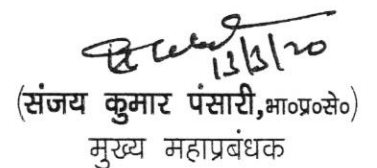 13/3/20
(संजय कुमार पंसारी,भा०प्र०से०)
मुख्य महाप्रबंधक